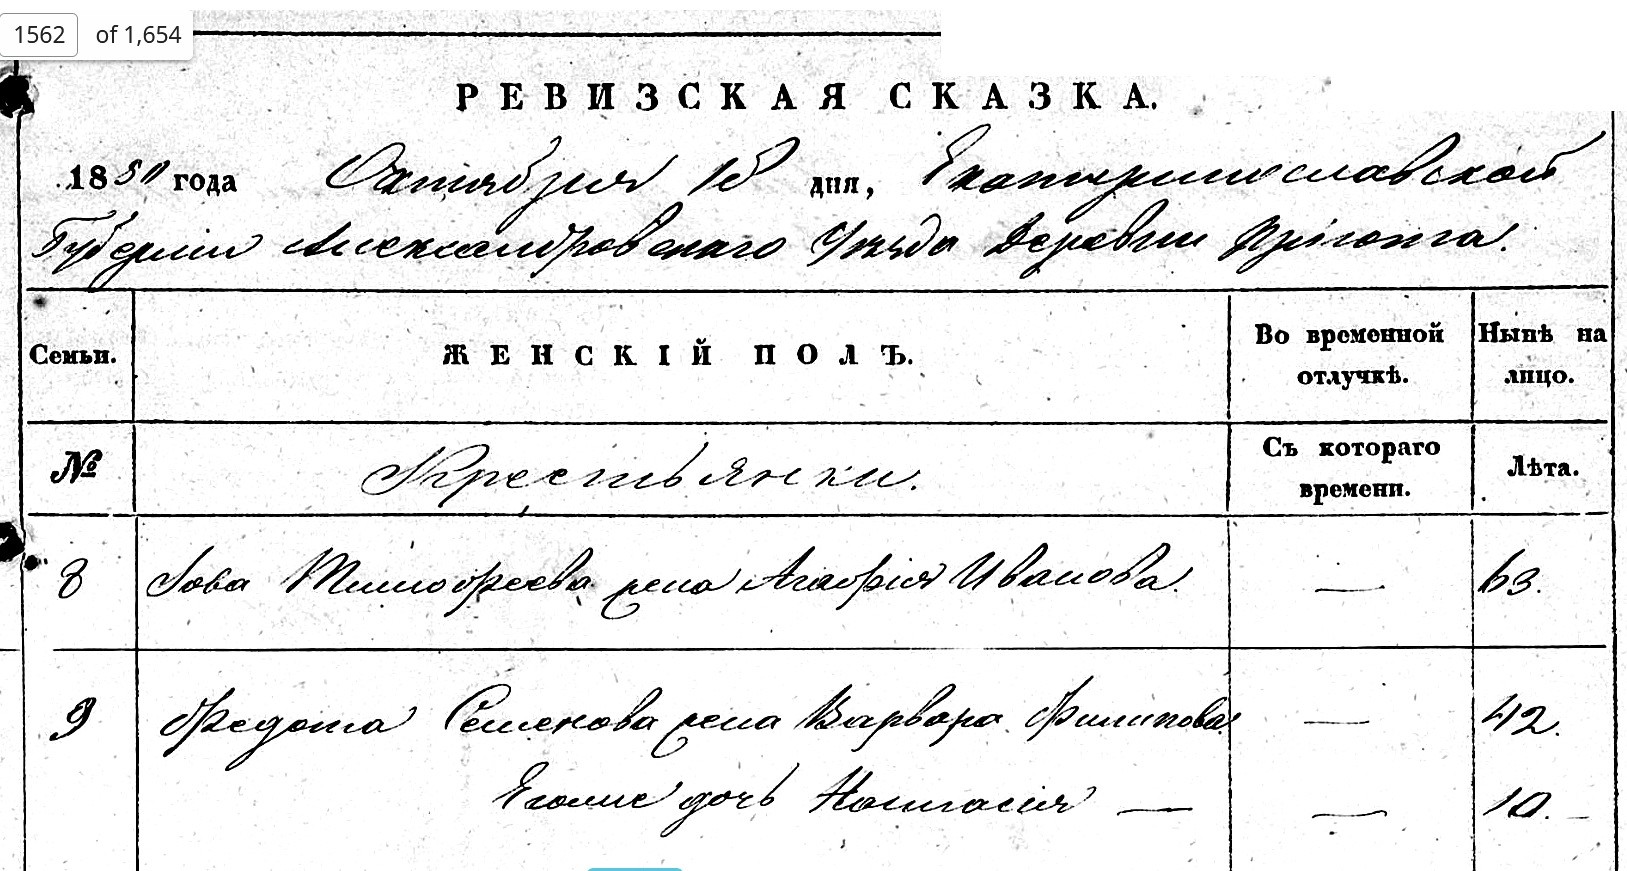 1562 of 1,654
РЕВИЗСКАЯ СКАЗКА.
1850 года Октября 16 дня, Екатеринославской
Губернии Александровскаго Уезда Деревни
Семьи. ЖЕНСКІЙ ПОЛЪ. Во временной отлучкѣ. Нынѣ на лицо.
№ Крестьянки. Съ котораго времени. Лѣта.
8 Іова Тимофеева жена Агафія Иванова. — 63.
9 Федота Семенова жена Варвара Филипова. — 42.
дочь Настасія — — 10. –